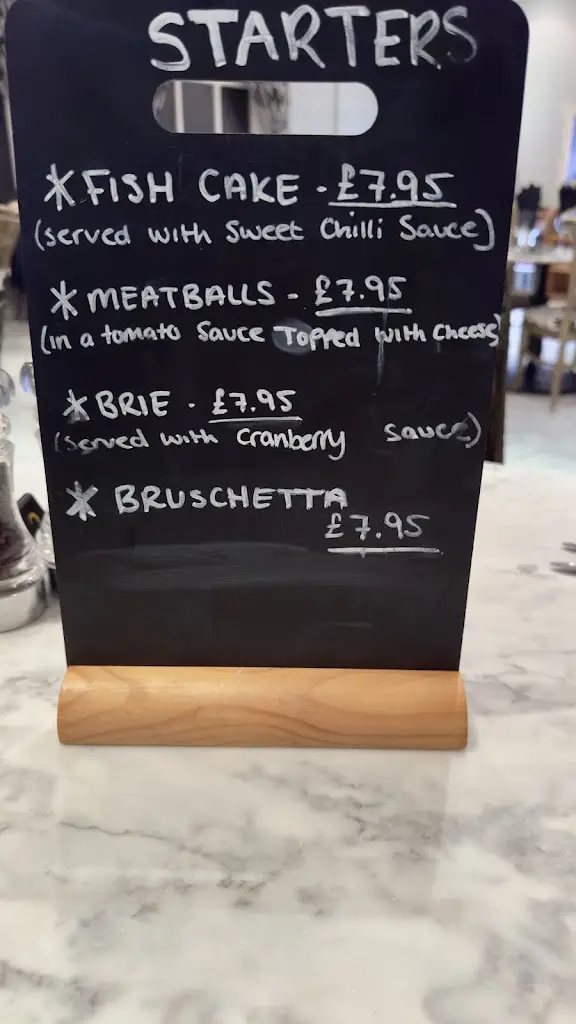 STARTERS
*FISH CAKE - £7.95
(served with Sweet Chilli Sauce)
*MEATBALLS - £7.95
(in a tomato Sauce Topped with Cheese)
*BRIE - £7.95
(served with Cranberry Sauce)
* BRUSCHETTA
£7.95